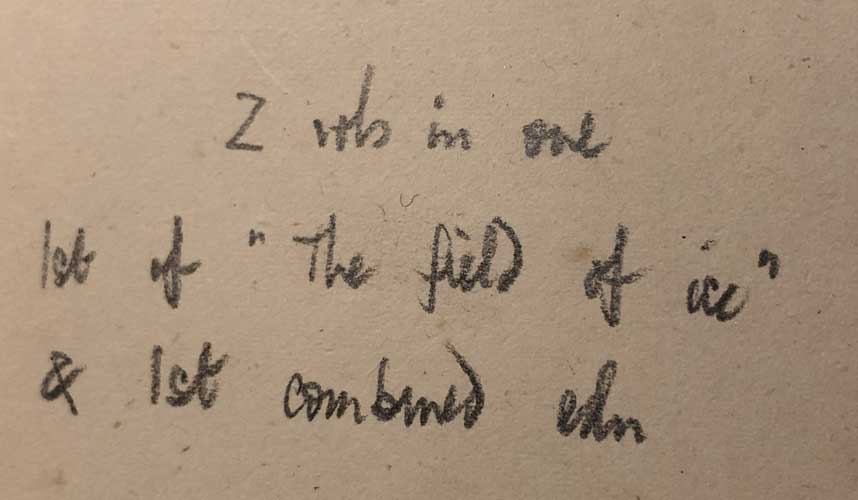 2 vols in one
1st of "The field of ice"
& 1st combined edn